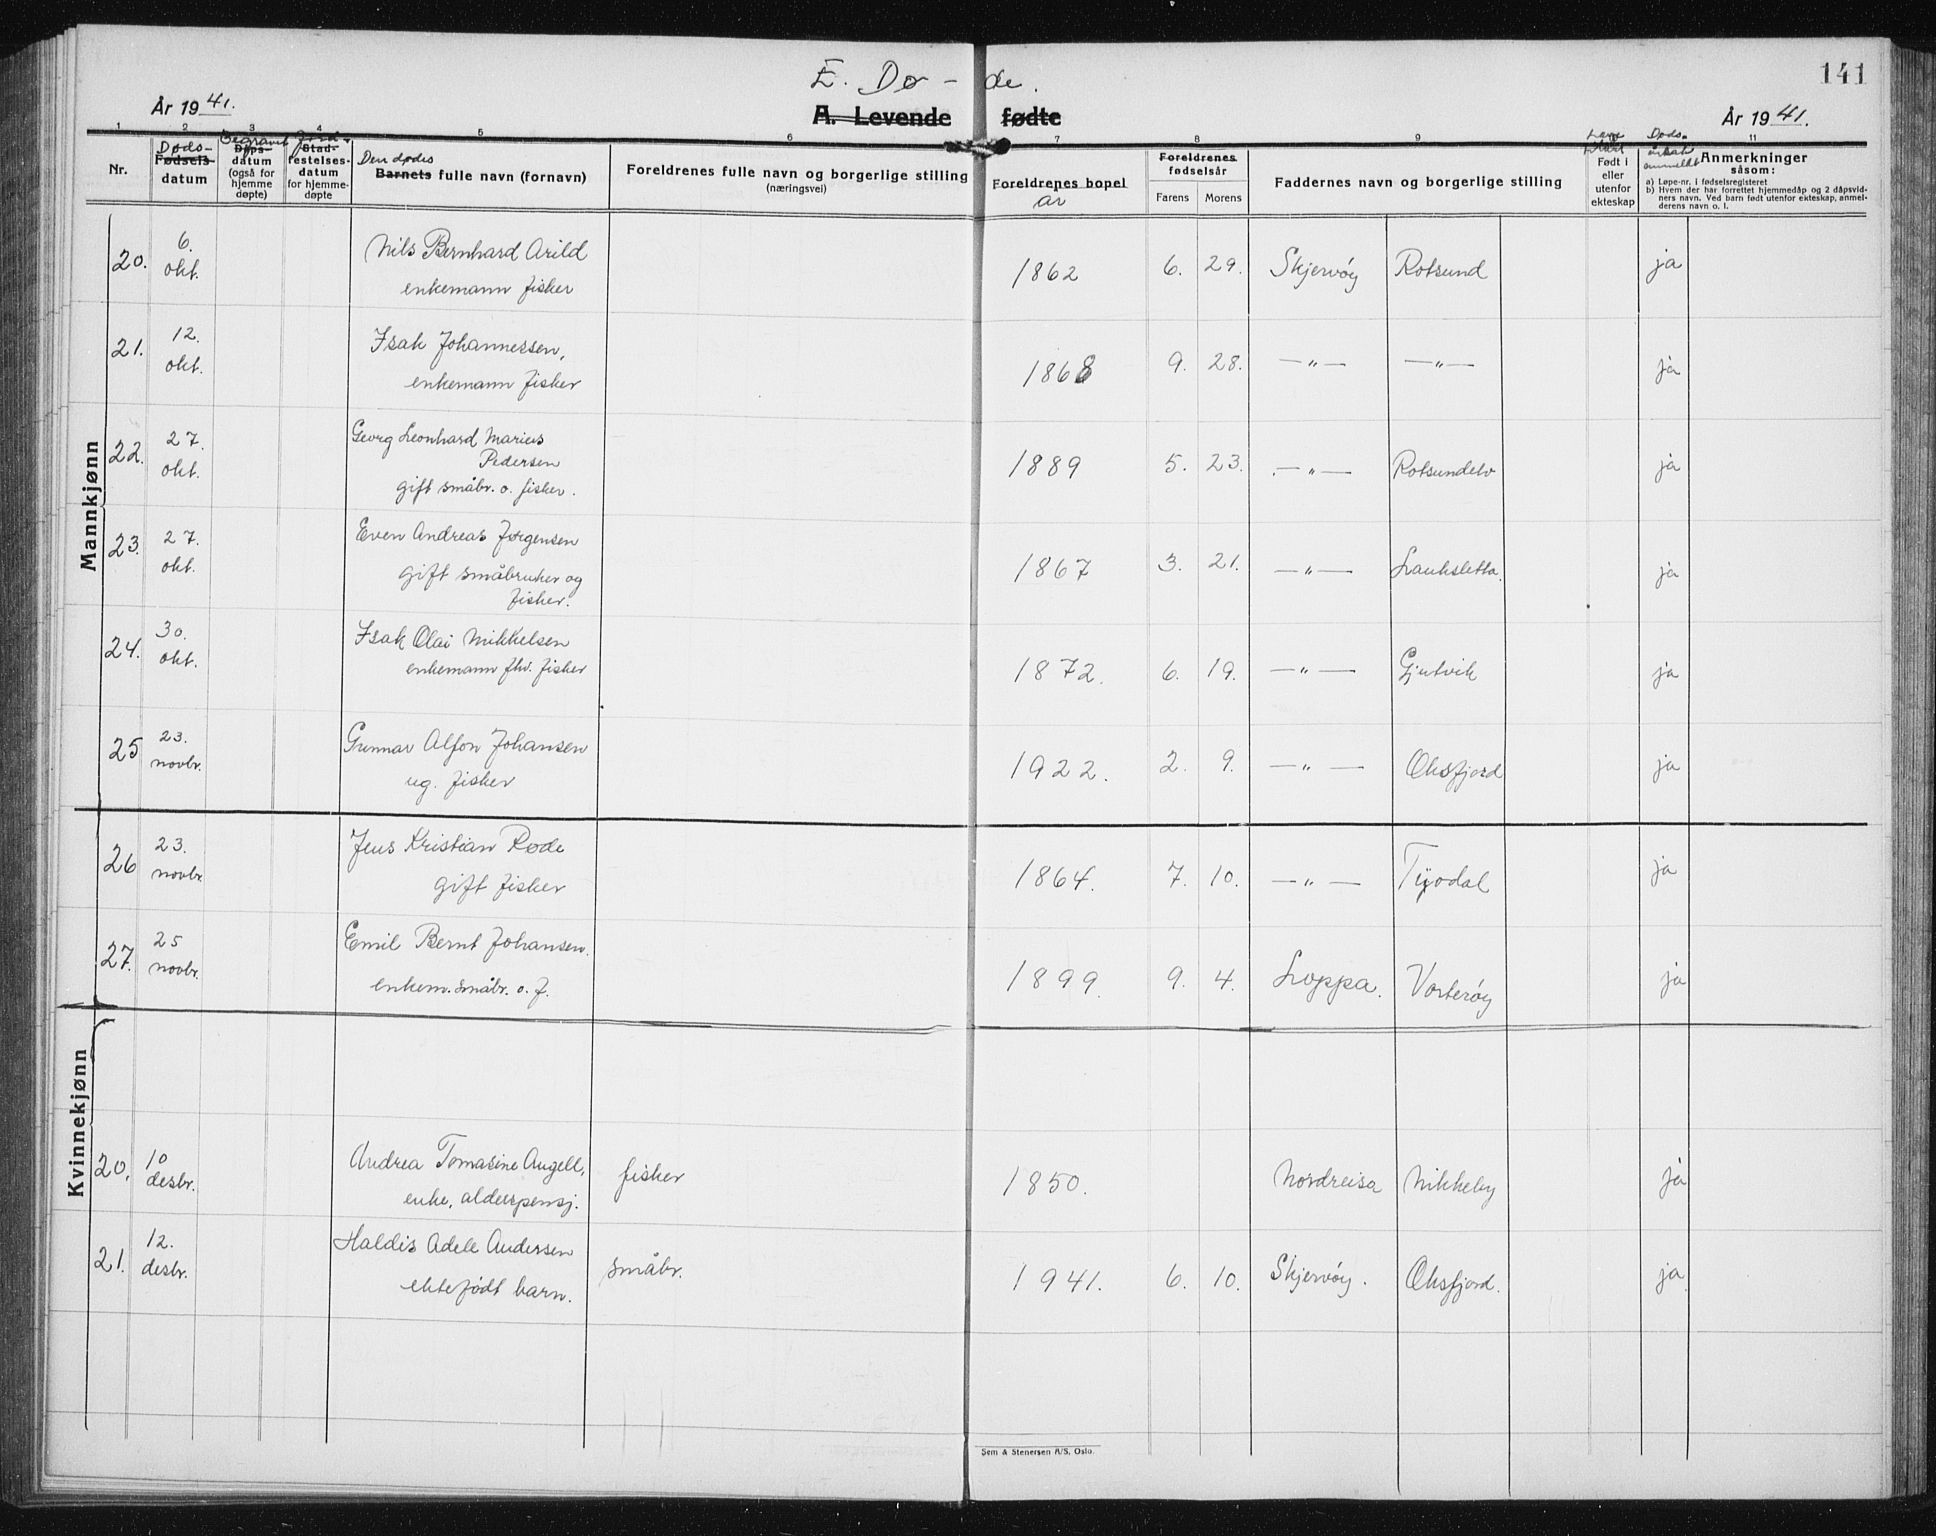 141
E. Dø-de.
År 1941.
A. Levende fødte
År 1941.
1 2 3 4 5 6 7 8 9 11
Nr.
Døds-
Fødsels
datum
Begravet
Dåps-
datum
(også for
hjemme
døpte)
Jord-
Stad-
festelses-
datum
for hjemme-
døpte
Den dødes
Barnets fulle navn (fornavn)
Foreldrenes fulle navn og borgerlige stilling
(næringsvei)
Foreldrenes bopel
år
Foreldrenes
fødselsår
Farens Morens
Faddernes navn og borgerlige stilling
Født i
eller
utenfor
ekteskap
Døds-
årsak
anmeldt
Anmerkninger
såsom:
a) Løpe-nr. i fødselsregisteret
b) Hvem der har forrettet hjemmedåp og 2 dåpsvid-
ners navn. Ved barn født utenfor ekteskap, anmel-
derens navn o. l.
Mannkjønn
20. 6. okt. Nils Bernhard Arild 1862 6. 29. Skjervøy Rotsund ja
enkemann fisker
21. 12. okt. Isak Johannessen, 1868 9. 28. —„— —„— ja
enkemann fisker
22. 27. okt. Georg Leonhard Marius 1889 5. 23. —„— Rotsundelv ja
Pedersen
gift småbr. o. fisker.
23. 27. okt. Even Andreas Jørgensen 1867 3. 21. —„— Lauksletta. ja
gift småbruker og
fisker.
24. 30. okt. Isak Olai Mikkelsen 1872. 6. 19. —„— Gjutvik ja
enkemann fhv. fisker
25 23. novbr. Gunnar Alfon Johansen 1922. 2. 9. —„— Oksfjord ja
ug. fisker
26 23. novbr. Jens Kristian Rode 1864. 7. 10. —„— ja
gift fisker
27. 25 novbr. Emil Bernt Johansen. 1899. 9. 4. Loppa. Vorterøy ja
enkem. småbr. o. f.
Kvinnekjønn
20. 10 desbr. Andrea Tomasine Angell, fisker 1850. Nordreisa Nikkeby ja
enke, alderspensj.
21. 12. desbr. Haldis Adele Andersen småbr. 1941. 6. 10. Skjervøy. Oksfjord. ja
ektefødt barn.
Sem & Stenersen A/S, Oslo.